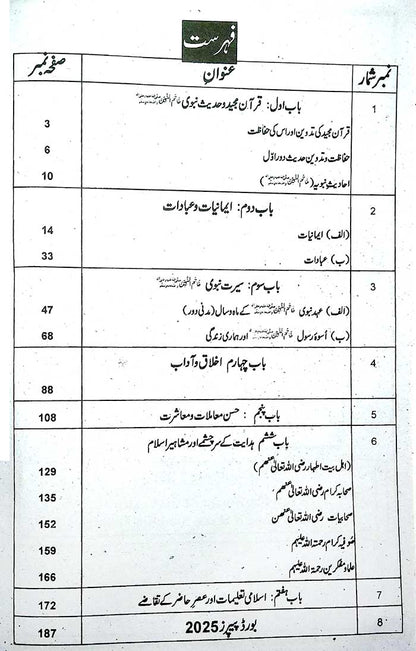 فہرست
نمبر شمار عنوان صفحہ نمبر
1 باب اول: قرآن مجید و حدیث نبوی خاتم النبیین
قرآن مجید کی تدوین اور اس کی حفاظت 3
حفاظت و تدوین حدیث دور اوّل 6
احادیث نبویہ (خاتم النبیین) 10
2 باب دوم: ایمانیات و عبادات
(الف) ایمانیات 14
(ب) عبادات 33
3 باب سوم: سیرت نبوی خاتم النبیین
(الف) عہد نبوی خاتم النبیین کے ماہ و سال (مدنی دور) 47
(ب) اُسوۂ رسول خاتم النبیین اور ہماری زندگی 68
4 باب چہارم اخلاق و آداب
88
5 باب پنجم : حسن معاملات و معاشرت 108
6 باب ششم ہدایت کے سرچشمے اور مشاہیر اسلام
(اہل بیت اطہار رضی اللہ تعالیٰ عنھم) 129
صحابہ کرام رضی اللہ تعالیٰ عنھم 135
صحابیات رضی اللہ تعالیٰ عنھن 152
صوفیہ کرام رحمتہ اللہ علیہم 159
علماء و مفکرین رحمتہ اللہ علیہم 166
7 باب ہفتم: اسلامی تعلیمات اور عصر حاضر کے تقاضے 172
8 بورڈ پیپرز 2025 187